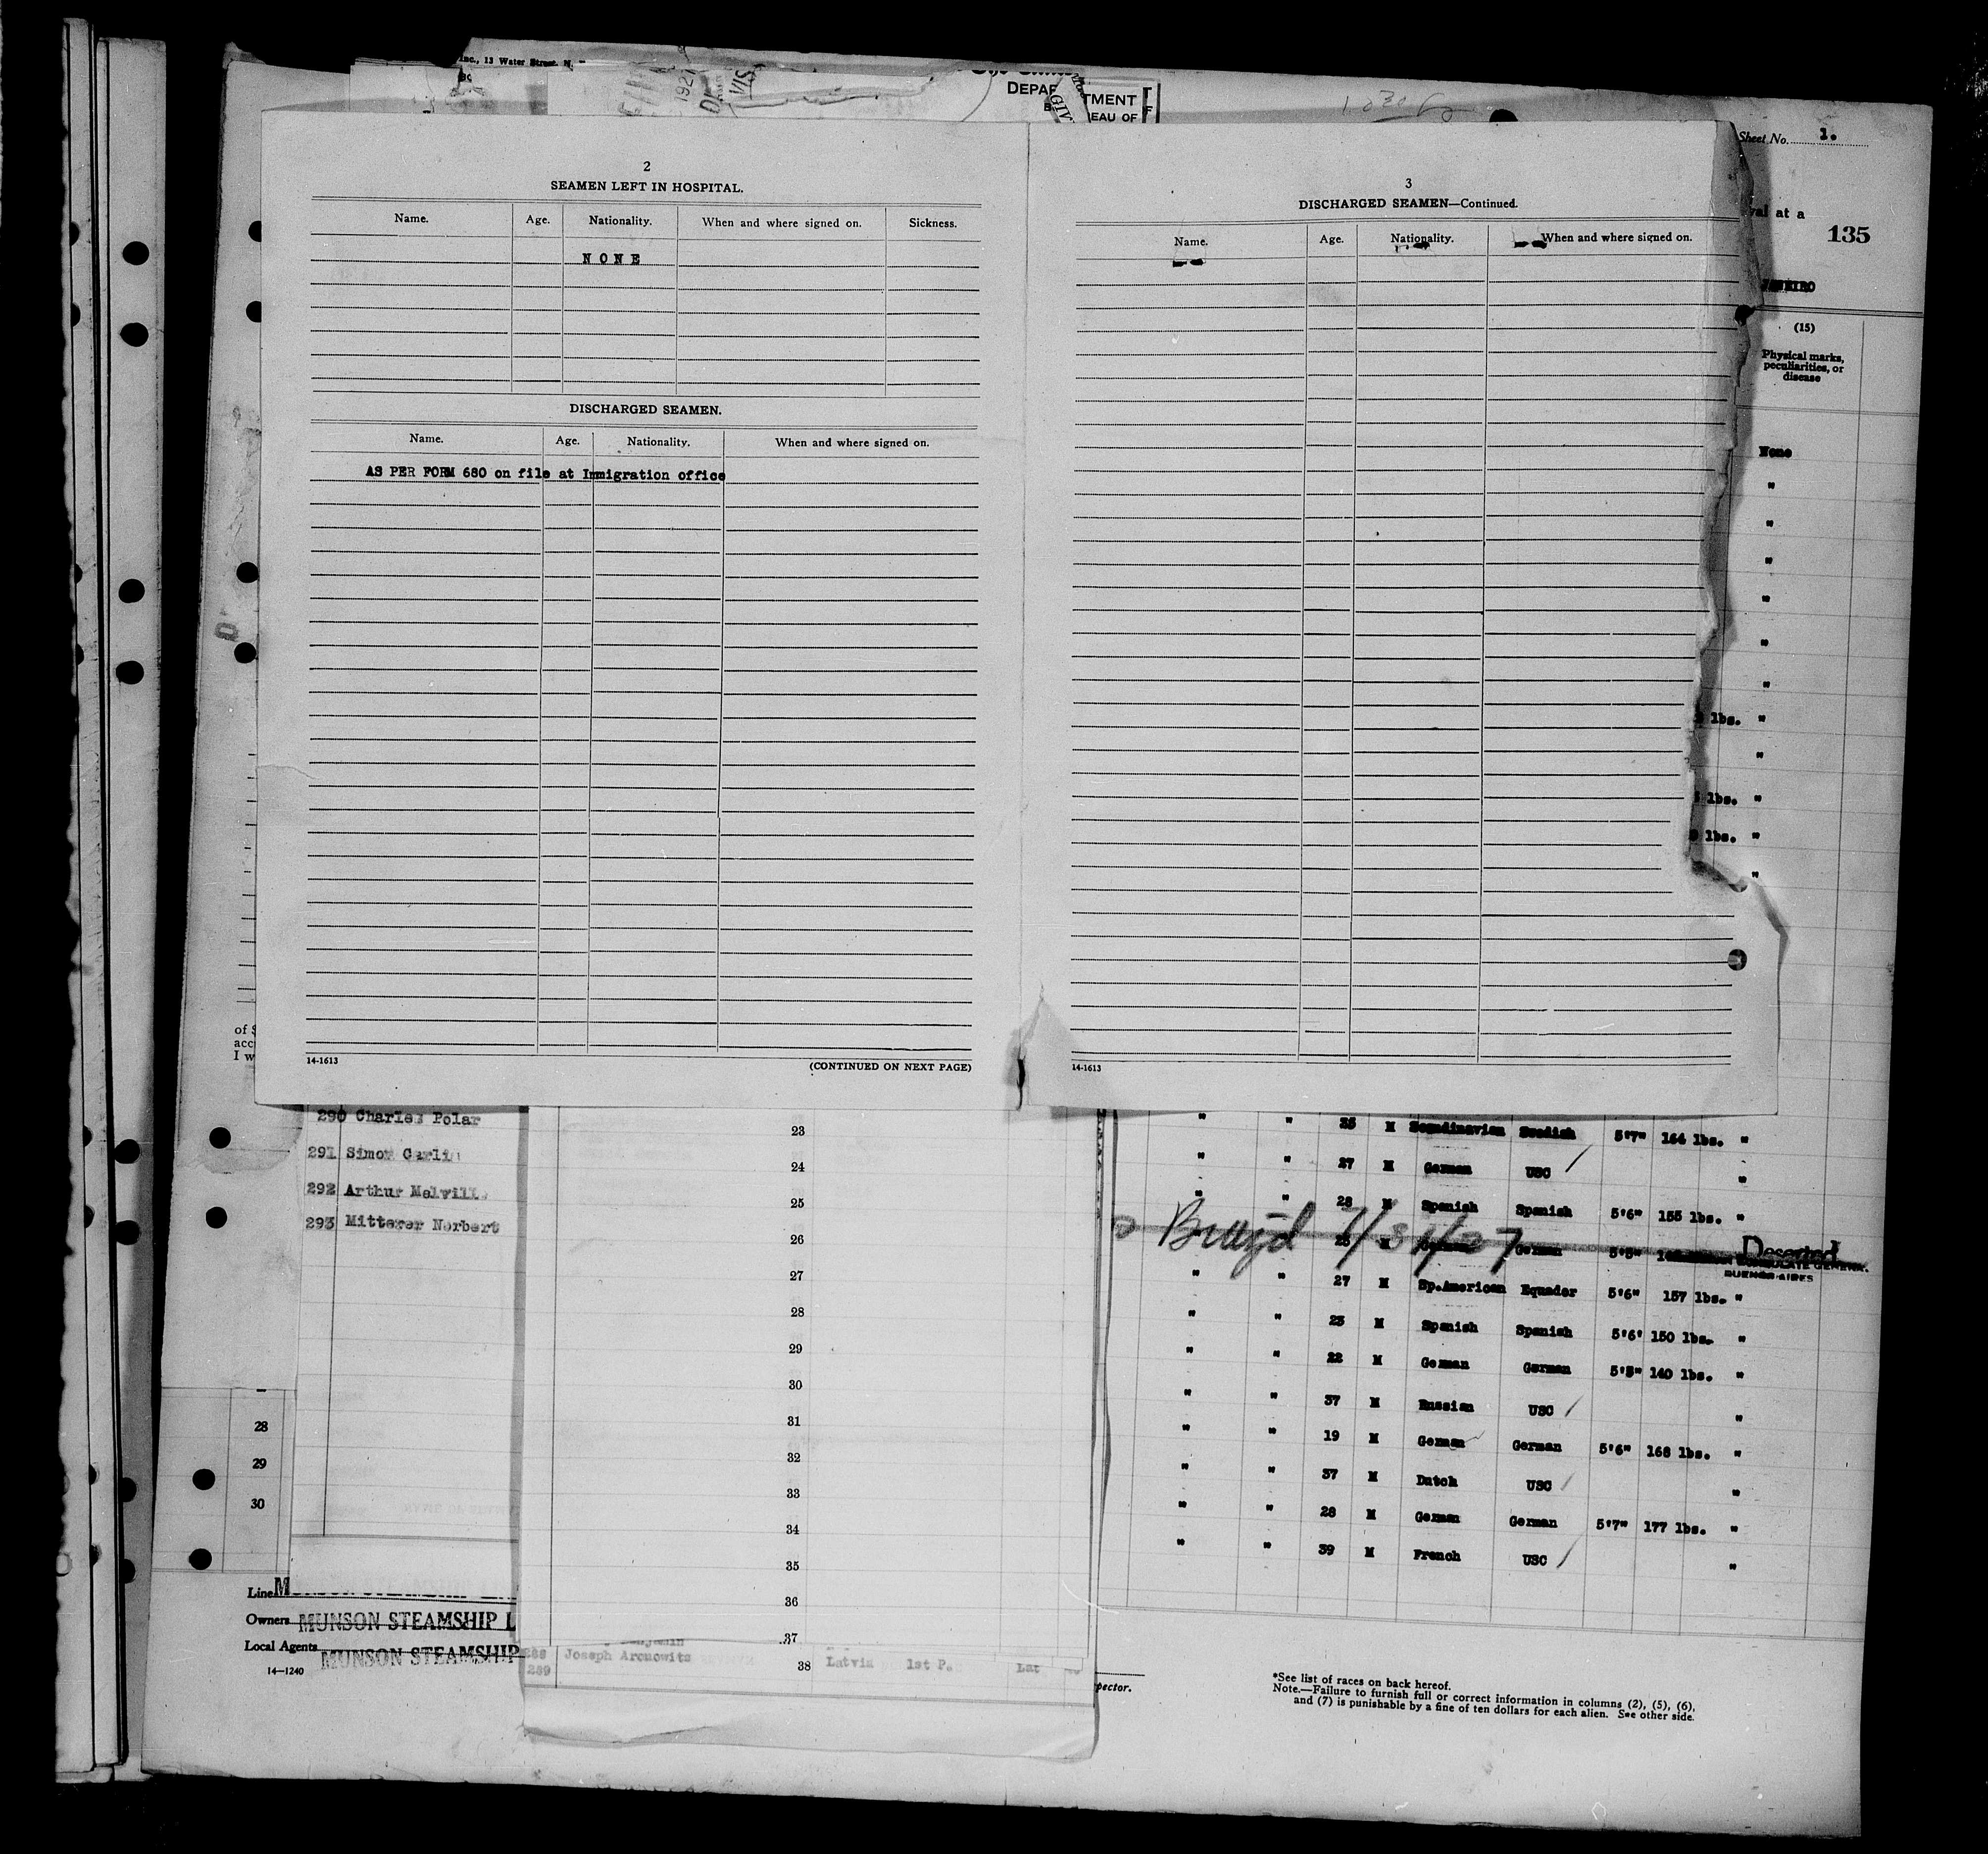 Inc., 13 Water Street, N.
1921
DEPARTMENT
EAU OF
Sheet No. 1.
val at a
135
JANEIRO
(15)
Physical marks, peculiarities, or disease
None
"
"
"
"
"
"
lbs. "
"
lbs. "
lbs. "
"
2
SEAMEN LEFT IN HOSPITAL.
Name. Age. Nationality. When and where signed on. Sickness.
NONE
DISCHARGED SEAMEN.
Name. Age. Nationality. When and where signed on.
AS PER FORM 680 on file at Immigration office
14-1613 (CONTINUED ON NEXT PAGE)
3
DISCHARGED SEAMEN—Continued.
Name. Age. Nationality. When and where signed on.
14-1613
of
acc
I w
290 Charles Polar
291 Simon Carlin
292 Arthur Melville
293 Mitterer Norbert
28
29
30
Line
Owners MUNSON STEAMSHIP L
Local Agents MUNSON STEAMSHIP
14—1240
23
24
25
26
27
28
29
30
31
32
33
34
35
36
37
289 Joseph Aronowitz 38 Latvia 1st P. Lat
" " 35 M Scandinavian Swedish 5'7" 164 lbs. "
" " 27 M German USC "
" " 28 M Spanish Spanish 5'6" 155 lbs. "
German German 5'5" Deserted
BUENOS AIRES
" " 27 M Sp.American Equador 5'6" 157 lbs. "
" " 25 M Spanish Spanish 5'6' 150 lbs. "
" " 22 M German German 5'5" 140 lbs. "
" " 37 M Russian USC "
" " 19 M German German 5'6" 168 lbs. "
" " 37 M Dutch USC "
" " 28 M German German 5'7" 177 lbs. "
" " 39 M French USC "
pector.
*See list of races on back hereof.
Note.—Failure to furnish full or correct information in columns (2), (5), (6),
and (7) is punishable by a fine of ten dollars for each alien. See other side.